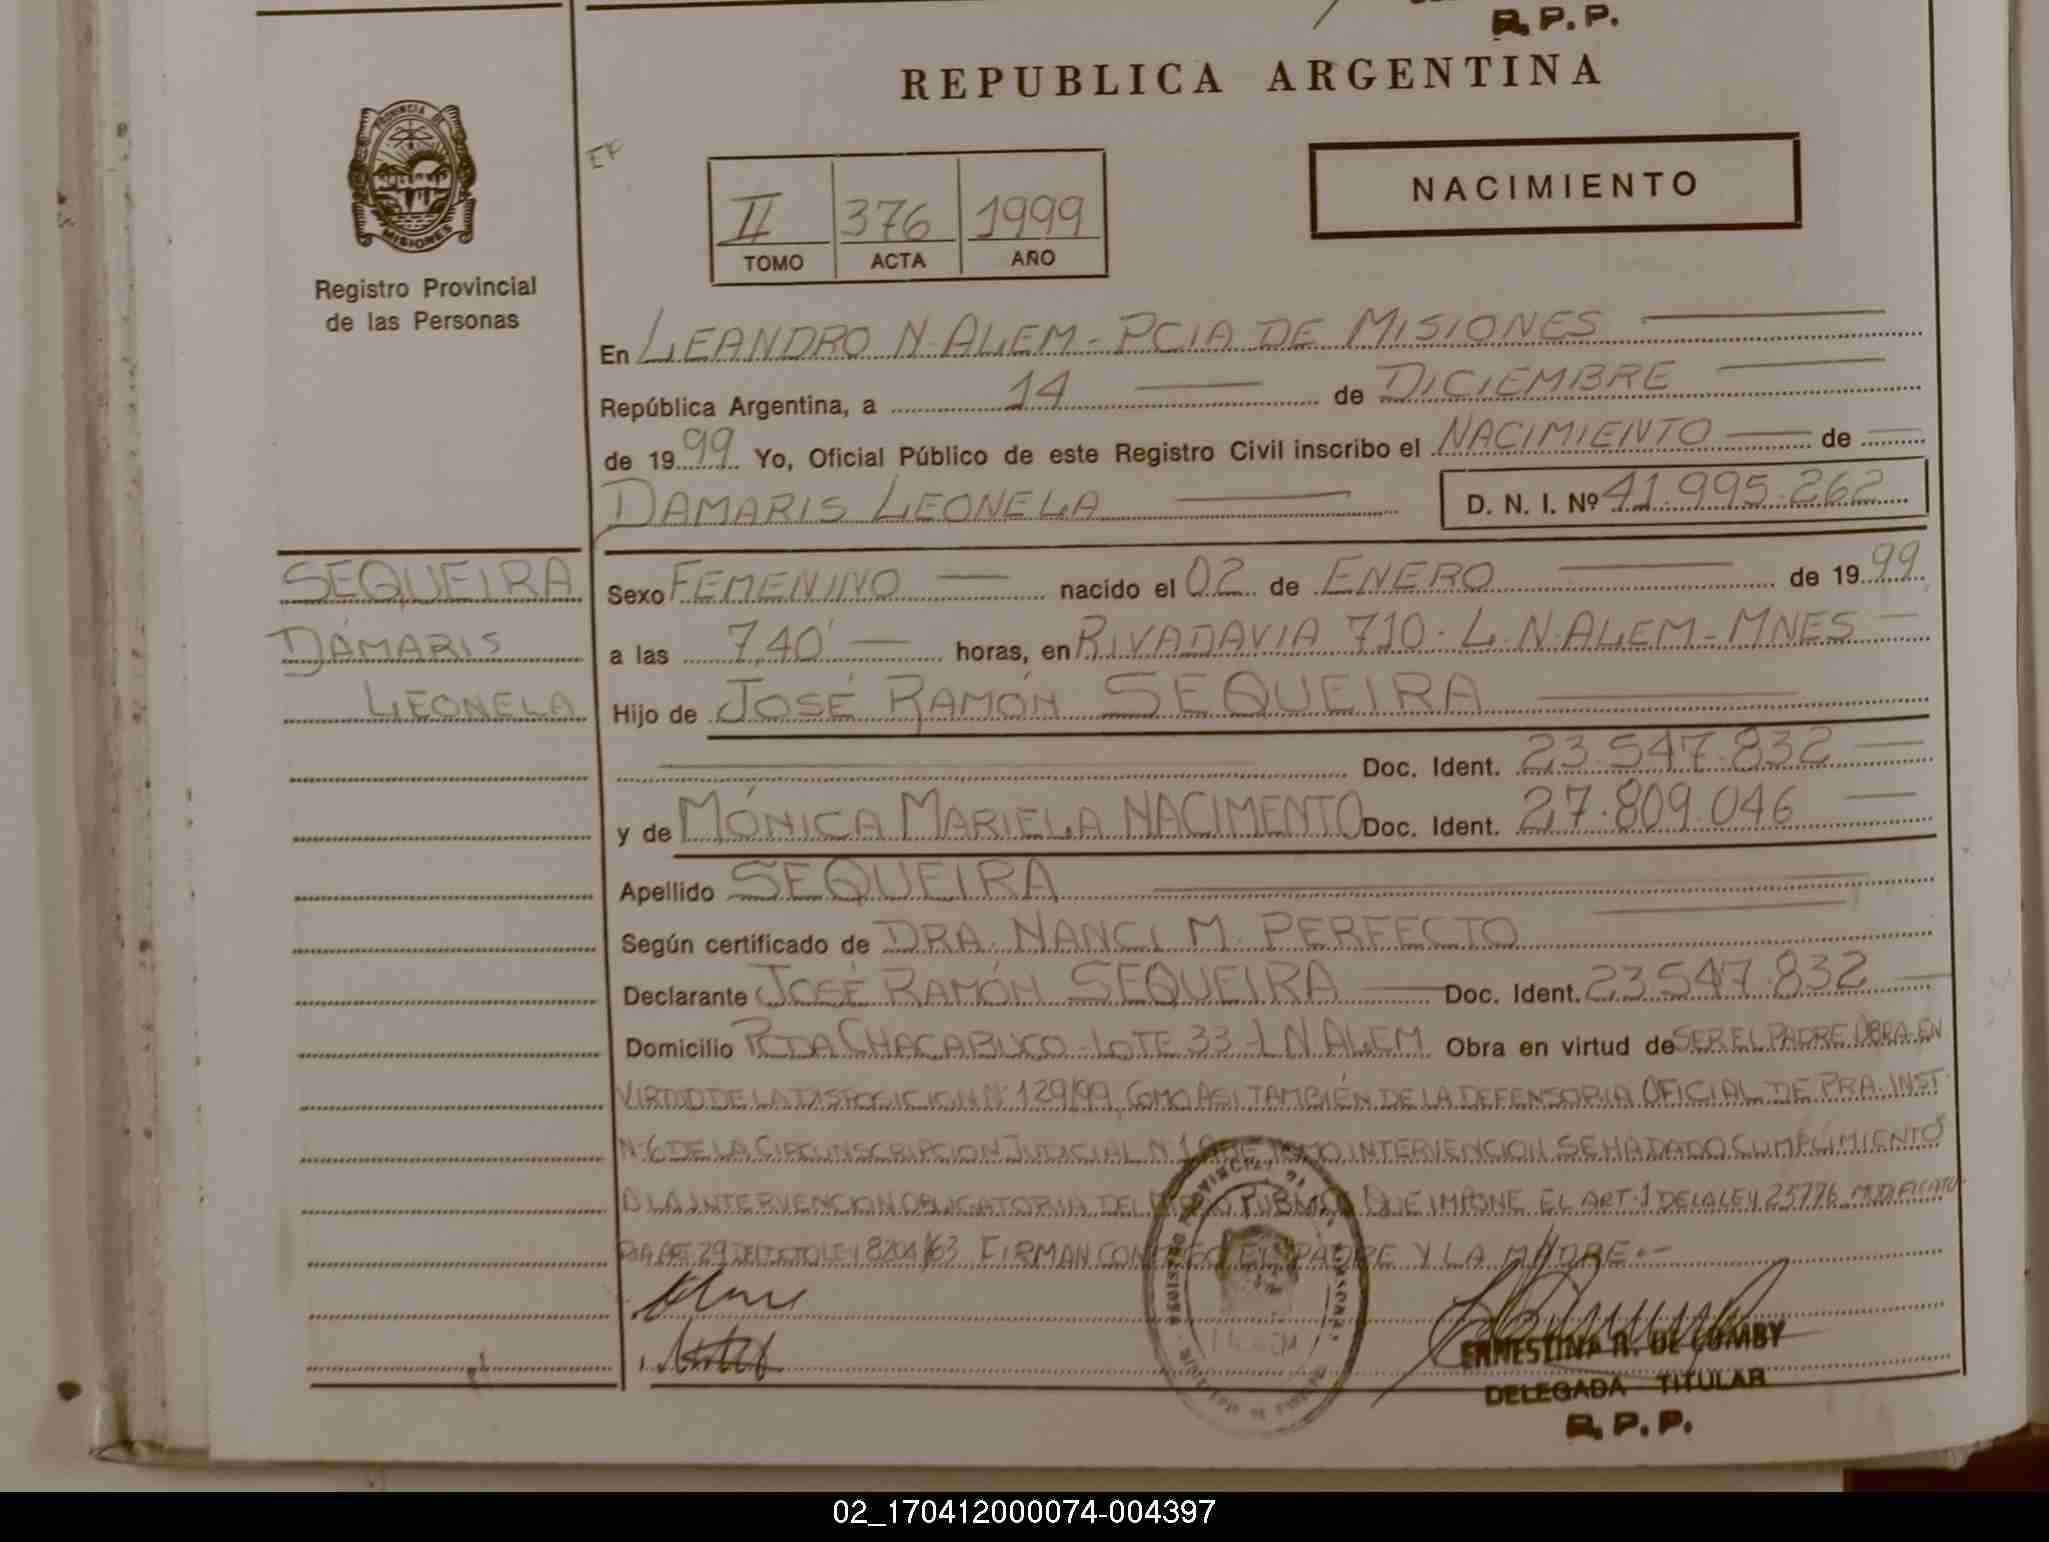 R.P.P.
REPUBLICA ARGENTINA
PROVINCIA DE
MISIONES
Registro Provincial
de las Personas
EP
II 376 1999
TOMO ACTA AÑO
NACIMIENTO
En LEANDRO N. ALEM - PCIA DE MISIONES
República Argentina, a 14 de DICIEMBRE
de 1999 Yo, Oficial Público de este Registro Civil inscribo el NACIMIENTO de
DAMARIS LEONELA D. N. I. Nº 41.995.262
SEQUEIRA
DAMARIS
LEONELA
Sexo FEMENINO nacido el 02 de ENERO de 1999
a las 7,40' horas, en RIVADAVIA 710 - L.N. ALEM - MNES
Hijo de JOSÉ RAMÓN SEQUEIRA
Doc. Ident. 23.547.832
y de MÓNICA MARIELA NACIMENTO Doc. Ident. 27.809.046
Apellido SEQUEIRA
Según certificado de DRA. NANCI M. PERFECTO
Declarante JOSÉ RAMÓN SEQUEIRA Doc. Ident. 23.547.832
Domicilio PCDA CHACABUCO - LOTE 33 - L N ALEM Obra en virtud de SER EL PADRE OBRA EN
VIRTUD DE LA DISPOSICION Nº 129/99, COMO ASI TAMBIÉN DE LA DEFENSORIA OFICIAL DE PRA. INST.
Nº 6 DE LA CIRCUNSCRIPCION JUDICIAL Nº 1 QUE TOMO INTERVENCION SE HA DADO CUMPLIMIENTO
A LA INTERVENCION OBLIGATORIA DEL PUBLICO QUE IMPONE EL ART. 1 DE LA LEY 23776 MODIFICATO-
RIA ART. 29 DEL DCTO LEY 8204/63 FIRMAN CONMIGO EL PADRE Y LA MADRE.-
ERNESTINA R. DE LOMBY
DELEGADA TITULAR
R.P.P.
02_170412000074-004397